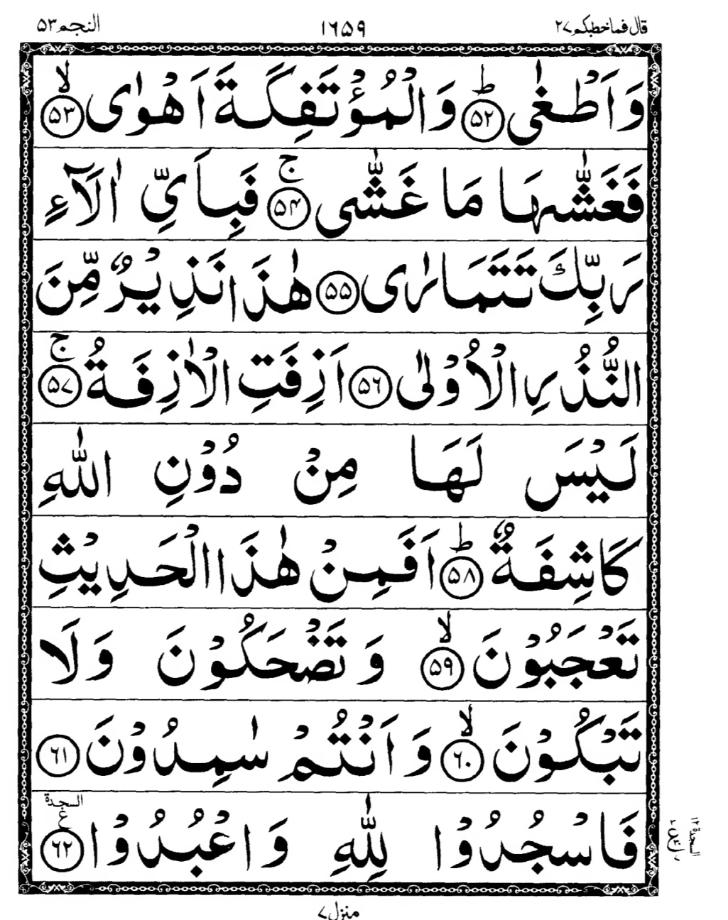 قال فماخطبكم ٢٧ ١٦٥٩ النجم ٥٣
وَاَطْغٰى ؕ﴿۵۲﴾ وَالْمُؤْتَفِكَةَ اَهْوٰى ۙ﴿۵۳﴾
فَغَشّٰىهَا مَا غَشّٰى ۚ﴿۵۴﴾ فَبِاَىِّ اٰلَآءِ
رَبِّكَ تَتَمَارٰى ﴿۵۵﴾ هٰذَا نَذِيْرٌ مِّنَ
النُّذُرِ الْاُوْلٰى ﴿۵۶﴾ اَزِفَتِ الْاٰزِفَةُ ۚ﴿۵۷﴾
لَيْسَ لَهَا مِنْ دُوْنِ اللّٰهِ
كَاشِفَةٌ ؕ﴿۵۸﴾ اَفَمِنْ هٰذَا الْحَدِيْثِ
تَعْجَبُوْنَ ۙ﴿۵۹﴾ وَتَضْحَكُوْنَ وَلَا
تَبْكُوْنَ ۙ﴿۶۰﴾ وَاَنْتُمْ سٰمِدُوْنَ ﴿۶۱﴾
فَاسْجُدُوْا لِلّٰهِ وَاعْبُدُوْا ﴿۶۲﴾ السجدة ع
السجدة ١٢
منزل ٧